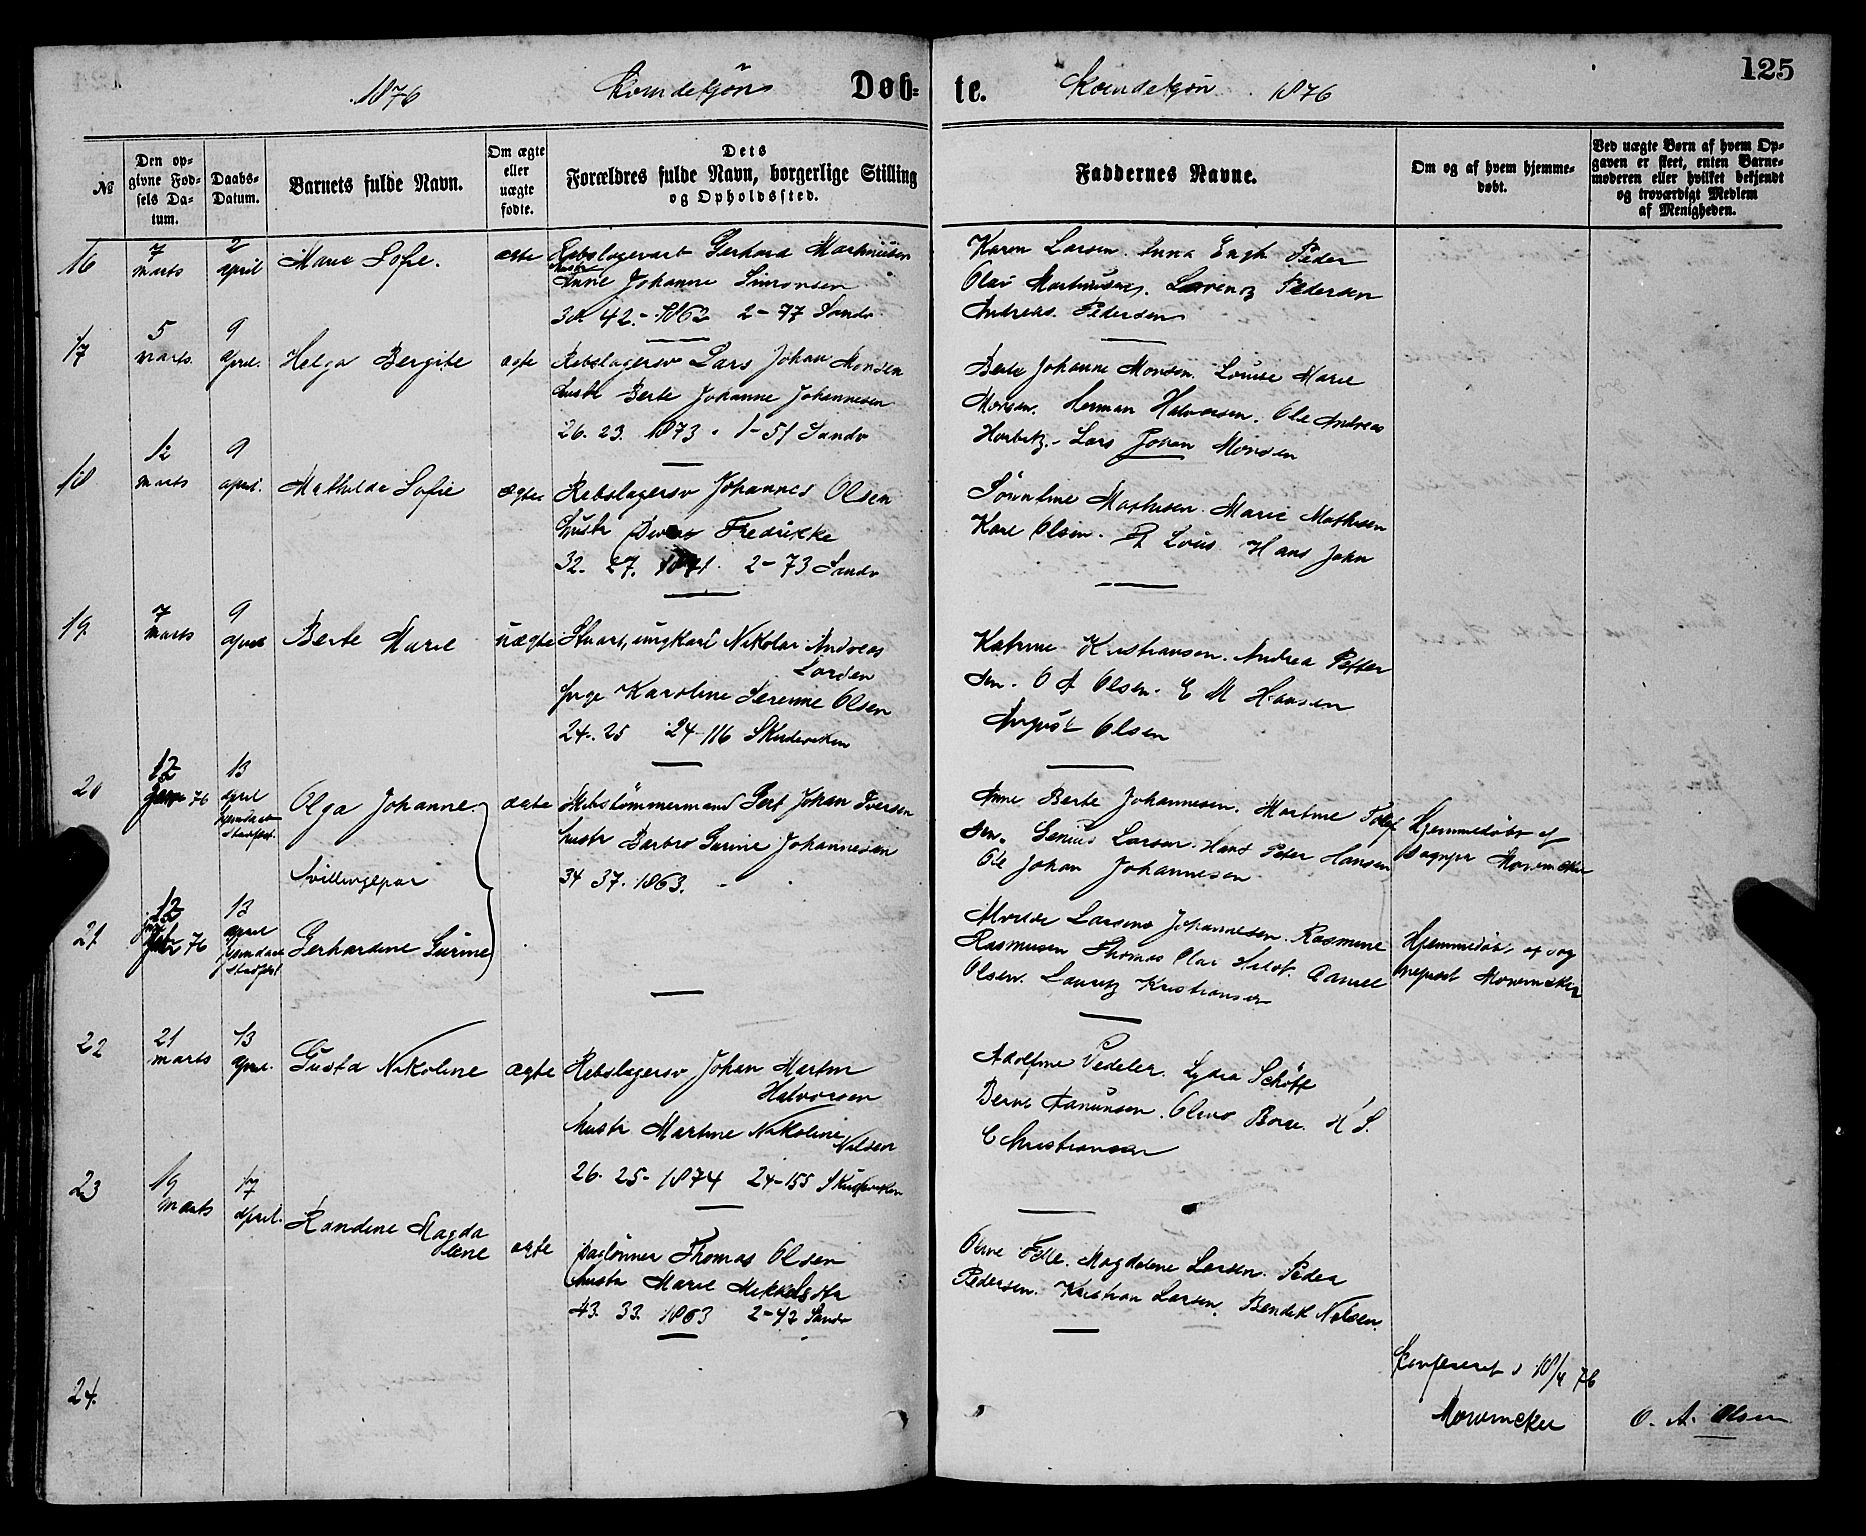 125
1876 Kvindekjøn Døb-
te. Kvindekjøn 1876
№
Den op-
givne Fød-
sels Da-
tum.
Daabs-
Datum.
Barnets fulde Navn.
Om ægte
eller
uægte
fødte.
Dets
Forældres fulde Navn, borgerlige Stilling
og Opholdssted.
Faddernes Navne.
Om og af hvem hjemme-
døbt.
Ved uægte Børn af hvem Op-
gaven er skeet, enten Barne-
moderen eller hvilket bekjendt
og troværdigt Medlem
af Menigheden.
16
7
marts
2
april
Marie Sofie.
ægte
Gerhard Martinusen
hustr
Anne Johanne Simonsen
30. 42. - 1862 2-77 Sandv
Karen Larsen. Anna Engh Peder
Olai Martinusen. Lorentz Pedersen
Andreas Pedersen
17
5
marts.
9
April.
Helga Bergite
ægte
Rebslagersv Lars Johan Monsen
hustr Berte Johanne Johannesen
26. 23. 1873. 1-51 Sandv
Berte Johanne Monsen. Louise Marie
Monsen. Herman Halvorsen. Ole Andreas
Lars Johan Monsen
18
12
marts
9
april.
Mathilde Sofie
ægte
Rebslagersv Johannes Olsen
hustr Fredrikke
32. 27. 1871. 2-73 Sandv
Mathisen. Marie Mathisen
Karl Olsen. Louis Hans John
19.
7
marts
9
april
Berte Marie
uægte
Stuart, ungkarl Nikolai Andreas
Larsen
pige Karoline Serenne Olsen
24. 25 24-116 Skudeviken
Katrine Kristiansen. Andrea Petter
sen. O A Olsen. E M Hansen
August Olsen
20
12
76
13
april
Olga Johanne.
Tvillingepar
ægte
Skibstømmermand Gert Johan Iversen
hustr Barbro Gurine Johannesen
34 37. 1863.
Anne Berte Johannesen. Martine Tollef
sen. Larsen. Hans Peter Hansen
Ole Johan Johannesen
Hjemmedøbt af
Sognepr Mowinckel
21.
12
76
13
april
Gerhardine Gurine
Larsine Johannesen. Rasmine
Rasmusen Thomas Olai Daniel
Olsen. Lauritz Kristiansen
Hjemmedøbt af sog
nepræst Mowinckel
22
21
marts
13
april.
Gusta Nikoline
ægte
Rebslagersv Johan Martin
Halvorsen
hustr Martine Nikoline
Nilsen
26. 25. 1874 24-155 Skudeviken
Adolfine Vedeler. Lydia
K S.
Christiansen
23
19
marts
17
april.
Randine Magda
lene
ægte
Dagl&oslash;nner Thomas Olsen
hustr Marie Mikkelsdtr
43. 33. 1863 2-42 Sandv
Magdalene Larsen. Peder
Pedersen. Kristian Larsen. Bendik Nilsen.
24.
Konfereret d 18/4 76
Mowinckel
O. A. Olsen